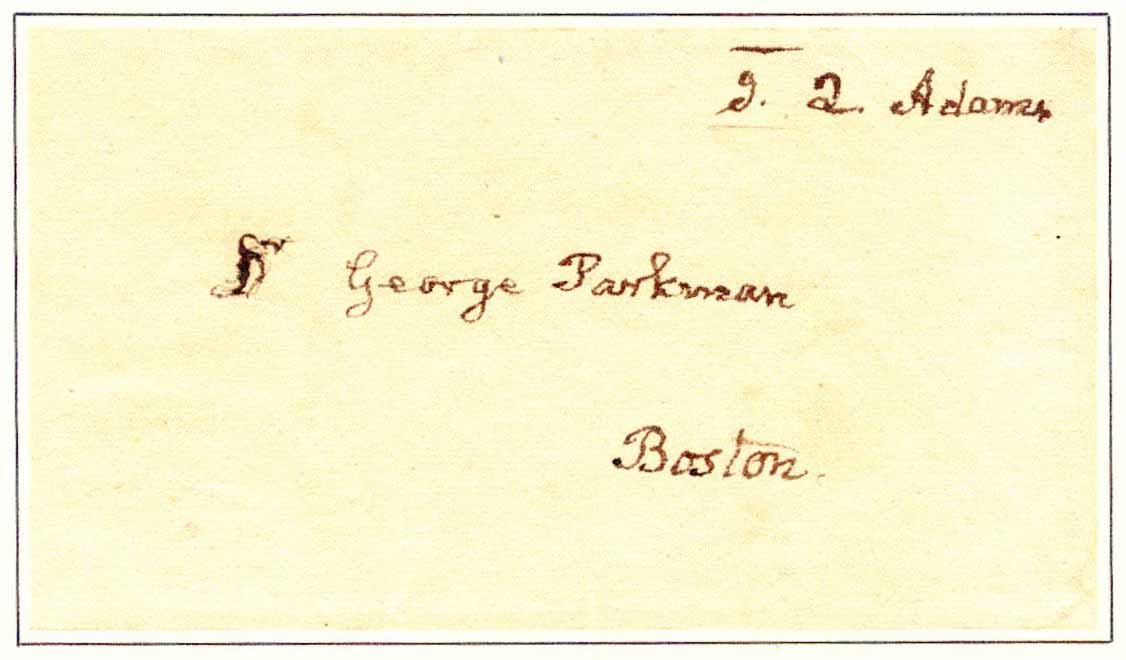 J. Q. Adams
Dr George Parkman
Boston.